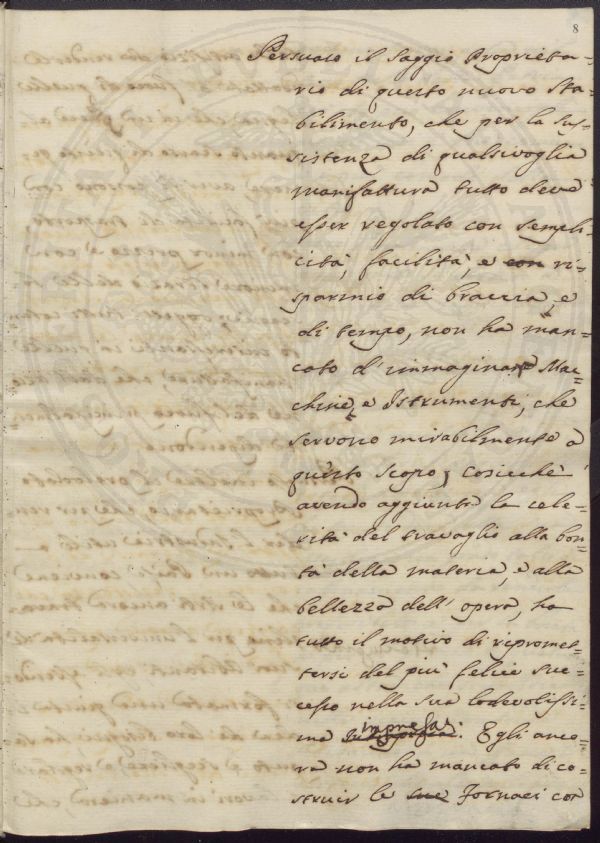 8
Persuaso il Saggio Proprieta=
rio di questo nuovo Sta=
bilimento, che per la sus=
sistenza di qualsivoglia
manifattura tutto deve
esser regolato con sempli=
cità, facilità, e con ri=
sparmio di braccia, e
di tempo, non ha man=
cato d'immaginare Mac=
chine, e Istrumenti, che
servono mirabilmente a
questo scopo, cosicchè
avendo aggiunta la cele=
rità del travaglio alla bon=
tà della materia, e alla
bellezza dell'opera, ha
tutto il motivo di ripromet=
tersi del più felice suc=
cesso nella sua lodevolissi=
ma impresa. Egli anco=
ra non ha mancato di co=
struir le sue Fornaci con